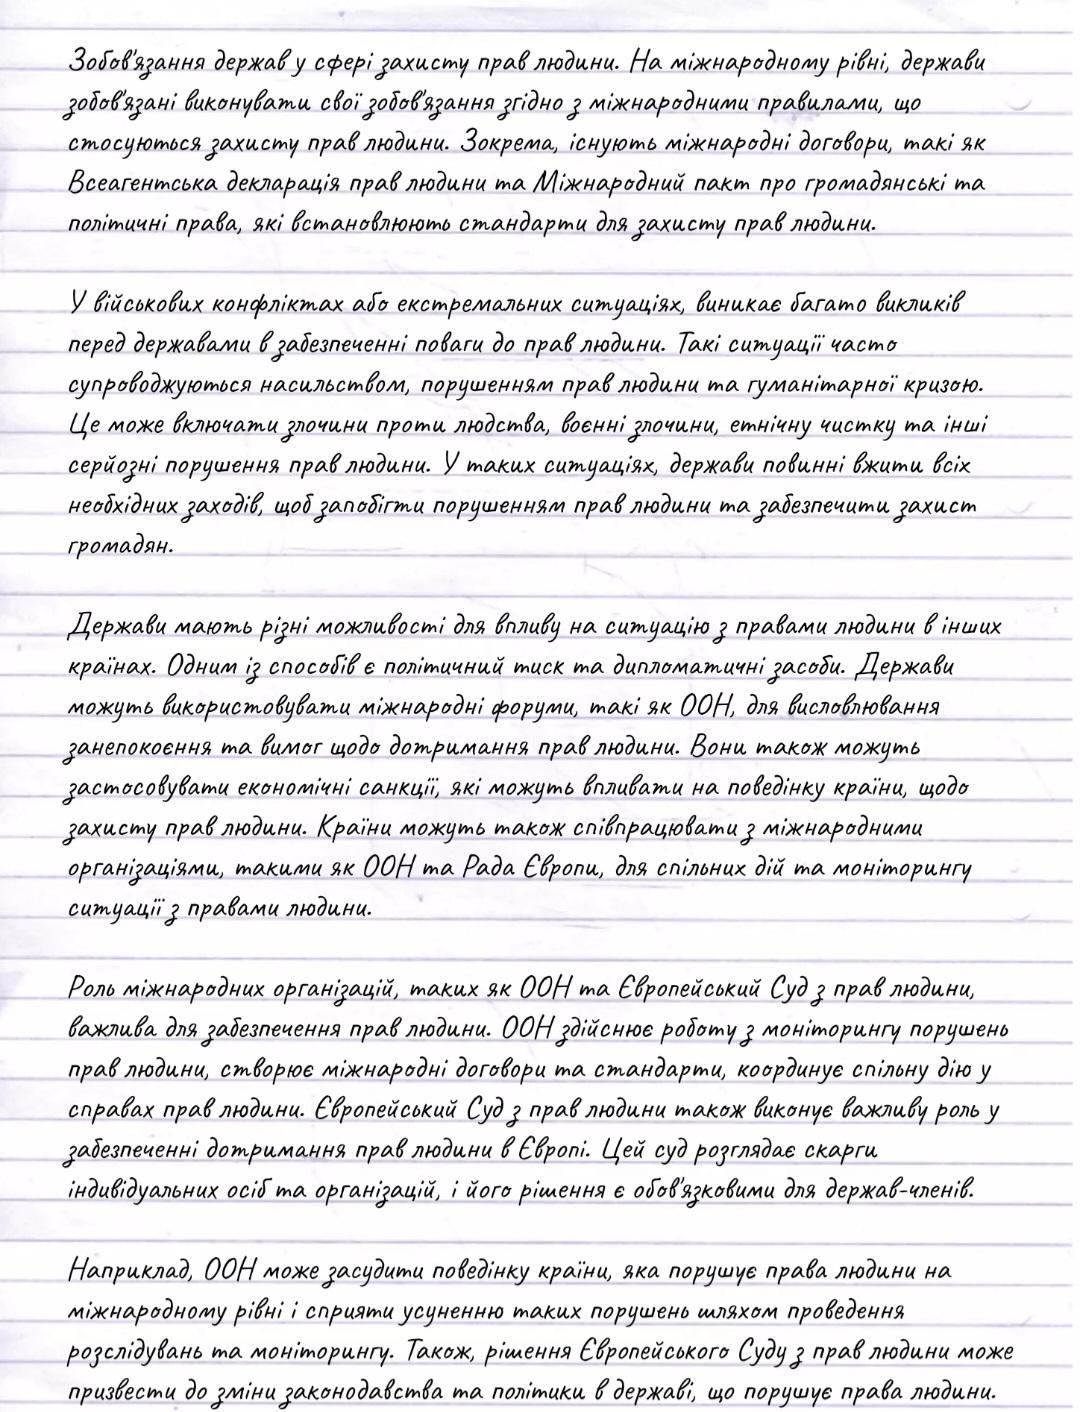 Зобов'язання держав у сфері захисту прав людини. На міжнародному рівні, держави
зобов'язані виконувати свої зобов'язання згідно з міжнародними правилами, що
стосуються захисту прав людини. Зокрема, існують міжнародні договори, такі як
Всеагентська декларація прав людини та Міжнародний пакт про громадянські та
політичні права, які встановлюють стандарти для захисту прав людини.
У військових конфліктах або екстремальних ситуаціях, виникає багато викликів
перед державами в забезпеченні поваги до прав людини. Такі ситуації часто
супроводжуються насильством, порушенням прав людини та гуманітарної кризою.
Це може включати злочини проти людства, воєнні злочини, етнічну чистку та інші
серйозні порушення прав людини. У таких ситуаціях, держави повинні вжити всіх
необхідних заходів, щоб запобігти порушенням прав людини та забезпечити захист
громадян.
Держави мають різні можливості для впливу на ситуацію з правами людини в інших
країнах. Одним із способів є політичний тиск та дипломатичні засоби. Держави
можуть використовувати міжнародні форуми, такі як ООН, для висловлювання
занепокоєння та вимог щодо дотримання прав людини. Вони також можуть
застосовувати економічні санкції, які можуть впливати на поведінку країни, щодо
захисту прав людини. Країни можуть також співпрацювати з міжнародними
організаціями, такими як ООН та Рада Європи, для спільних дій та моніторингу
ситуації з правами людини.
Роль міжнародних організацій, таких як ООН та Європейський Суд з прав людини,
важлива для забезпечення прав людини. ООН здійснює роботу з моніторингу порушень
прав людини, створює міжнародні договори та стандарти, координує спільну дію у
справах прав людини. Європейський Суд з прав людини також виконує важливу роль у
забезпеченні дотримання прав людини в Європі. Цей суд розглядає скарги
індивідуальних осіб та організацій, і його рішення є обов'язковими для держав-членів.
Наприклад, ООН може засудити поведінку країни, яка порушує права людини на
міжнародному рівні і сприяти усуненню таких порушень шляхом проведення
розслідувань та моніторингу. Також, рішення Європейського Суду з прав людини може
призвести до зміни законодавства та політики в державі, що порушує права людини.